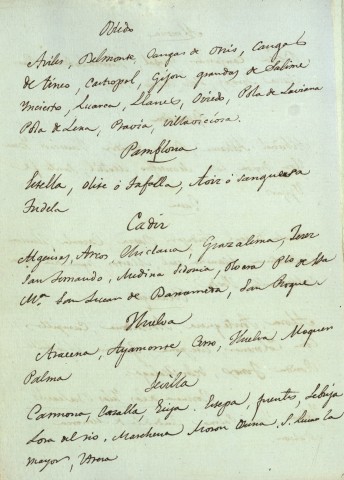 Oviedo
Aviles, Belmonte, Cangas de Onis, Cangas
de tineo, Castropol, Gijon grandas de Salime
Ynciesto, Luarca, Llanes, Oviedo, Pola de Laviana
Pola de Lena, Pravia, Villaviciosa.
Pamplona
Estella, Olite ó Tafalla, Aoiz ó Sanguesa
Tudela
Cadiz
Algeciras, Arcos, Chiclana, Grazalema, Jerez
San Fernando, Medina Sidonia, Olvera Pto de Sta
Ma. San Lucar de Barrameda, San Roque
Huelva
Aracena, Ayamonte, Cerro, Huelva Moguer
Palma
Sevilla
Carmona, Cazalla, Ecija. Estepa, fuentes, Lebrija
Lora del rio, Marchena Moron Osuna, S. Lucar la
mayor, Utrera